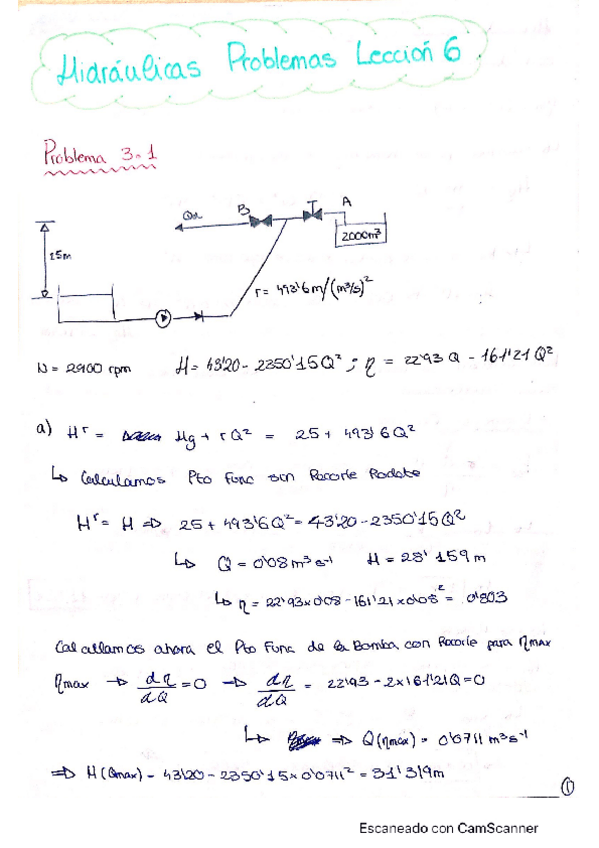 Hidráulicas Problemas Lección 6.
Problema 3.1
Qa
B
T
A
2000m³
15m
r= 493'6m/(m³/s)²
N = 2900 rpm H= 43'20 - 2350'15Q² ; η = 22'93 Q - 161'21 Q²
a) Hʳ = Hg + rQ² = 25 + 493'6Q²
↳ Calculamos Pto Func sin Recorte Rodete
Hʳ= H ⇒ 25 + 493'6Q²= 43'20 - 2350'15Q²
↳ Q = 0'08 m³s⁻¹ H = 28'159 m
↳ η = 22'93x0'08 - 161'21x0'08² = 0'803
Calculamos ahora el Pto Func de la Bomba con Recorte para ηmax
ηmax → dη/dQ = 0 → dη/dQ = 22'93 - 2x161'21Q = 0
↳ ⇒ Q(ηmax) = 0'0711 m³s⁻¹
⇒ H(Qmax) = 43'20 - 2350'15x0'0711² = 31'319m
1
Escaneado con CamScanner